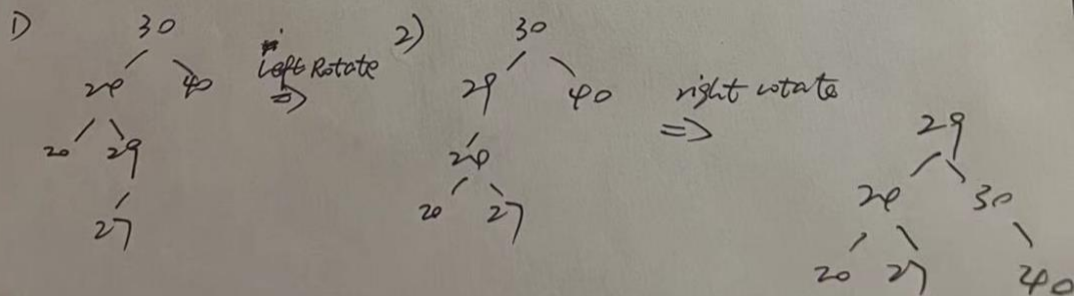 1)
30
24 40
20 29
27
left Rotate
⇒
2)
30
29 40
24
20 27
right rotate
⇒
29
24 30
20 27 40